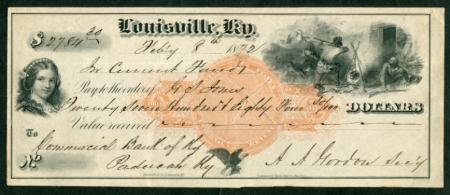 Louisville, Ky.
$2784 30
Feb'y 8th 1872
In Current Funds
Pay to the order of H S Jones
Twenty Seven Hundred & Eighty Four 30/100 DOLLARS
Value received
To Commercial Bank of Ky
Paducah Ky
No
A. A. Gordon Sec'y